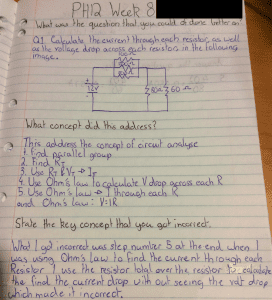 PH12 Week 8
What was the question that you could of done better on?
Q1. Calculate the current through each resistor, as well
as the voltage drop across each resistor in the following
image.
12V
60 Ω
What concept did this address?
This address the concept of circuit analyse
1. Find parallel group
2. Find RT
3. Use RT & VT → IT
4. Use Ohm's law to calculate V drop across each R
5. Use Ohm's law → I through each R.
and Ohm's law: V=IR
State the key concept that you got incorrect.
What I got incorrect was step number 5 at the end when I
was using Ohm's law to find the current through each
Resistor. I use the resistor total over the resistor to calculate
the find the current drop with out seeing the volt drop
which made it incorrect.